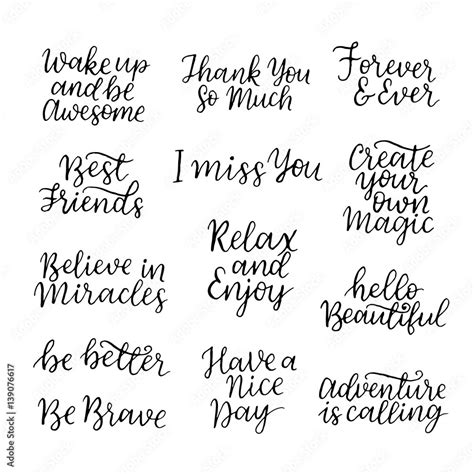 Wake up
and be
Awesome
Thank You
So Much
Forever
& Ever
Best
Friends
I miss You
Create
your
own
Magic
Believe in
Miracles
Relax
and
Enjoy
hello
Beautiful
be better
Be Brave
Have a
Nice
Day
Adventure
is calling
Adobe Stock | #139076617